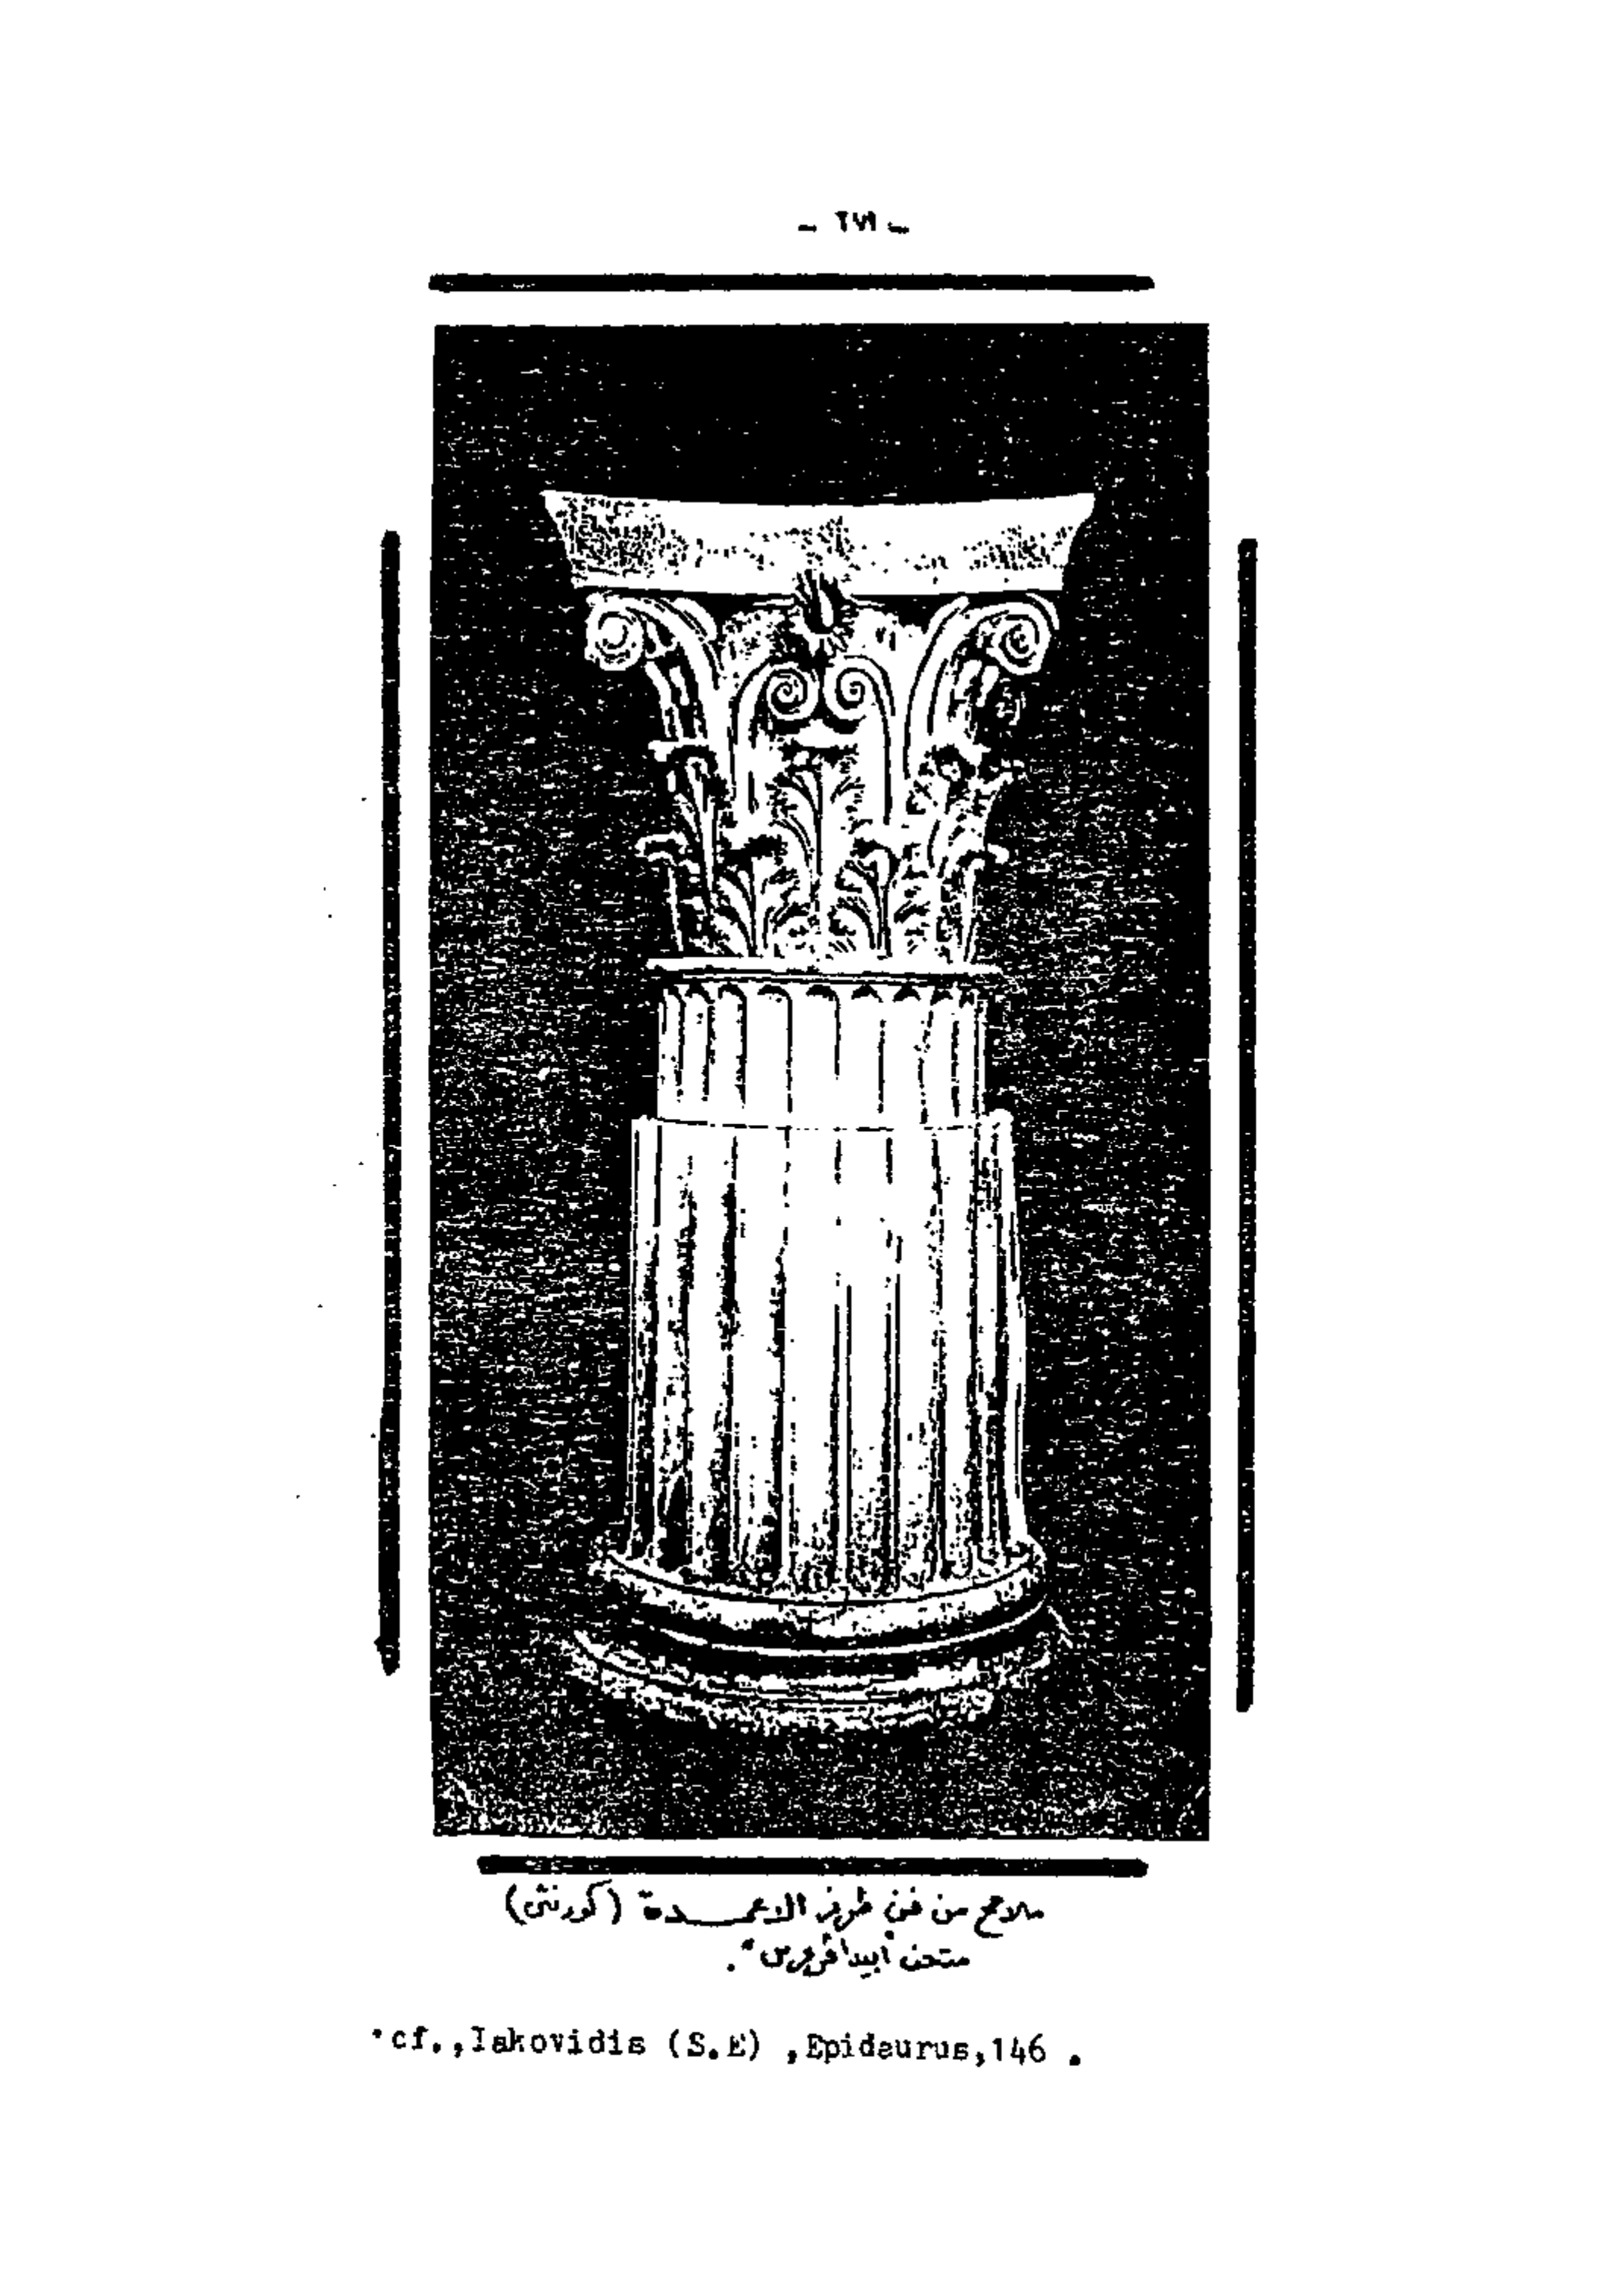 ملامح من فن طرز الاعمدة (كورنثى)
متحف أبيداڤروس * .
* cf.,Iakovidis (S.E) ,Epidaurus,146 .